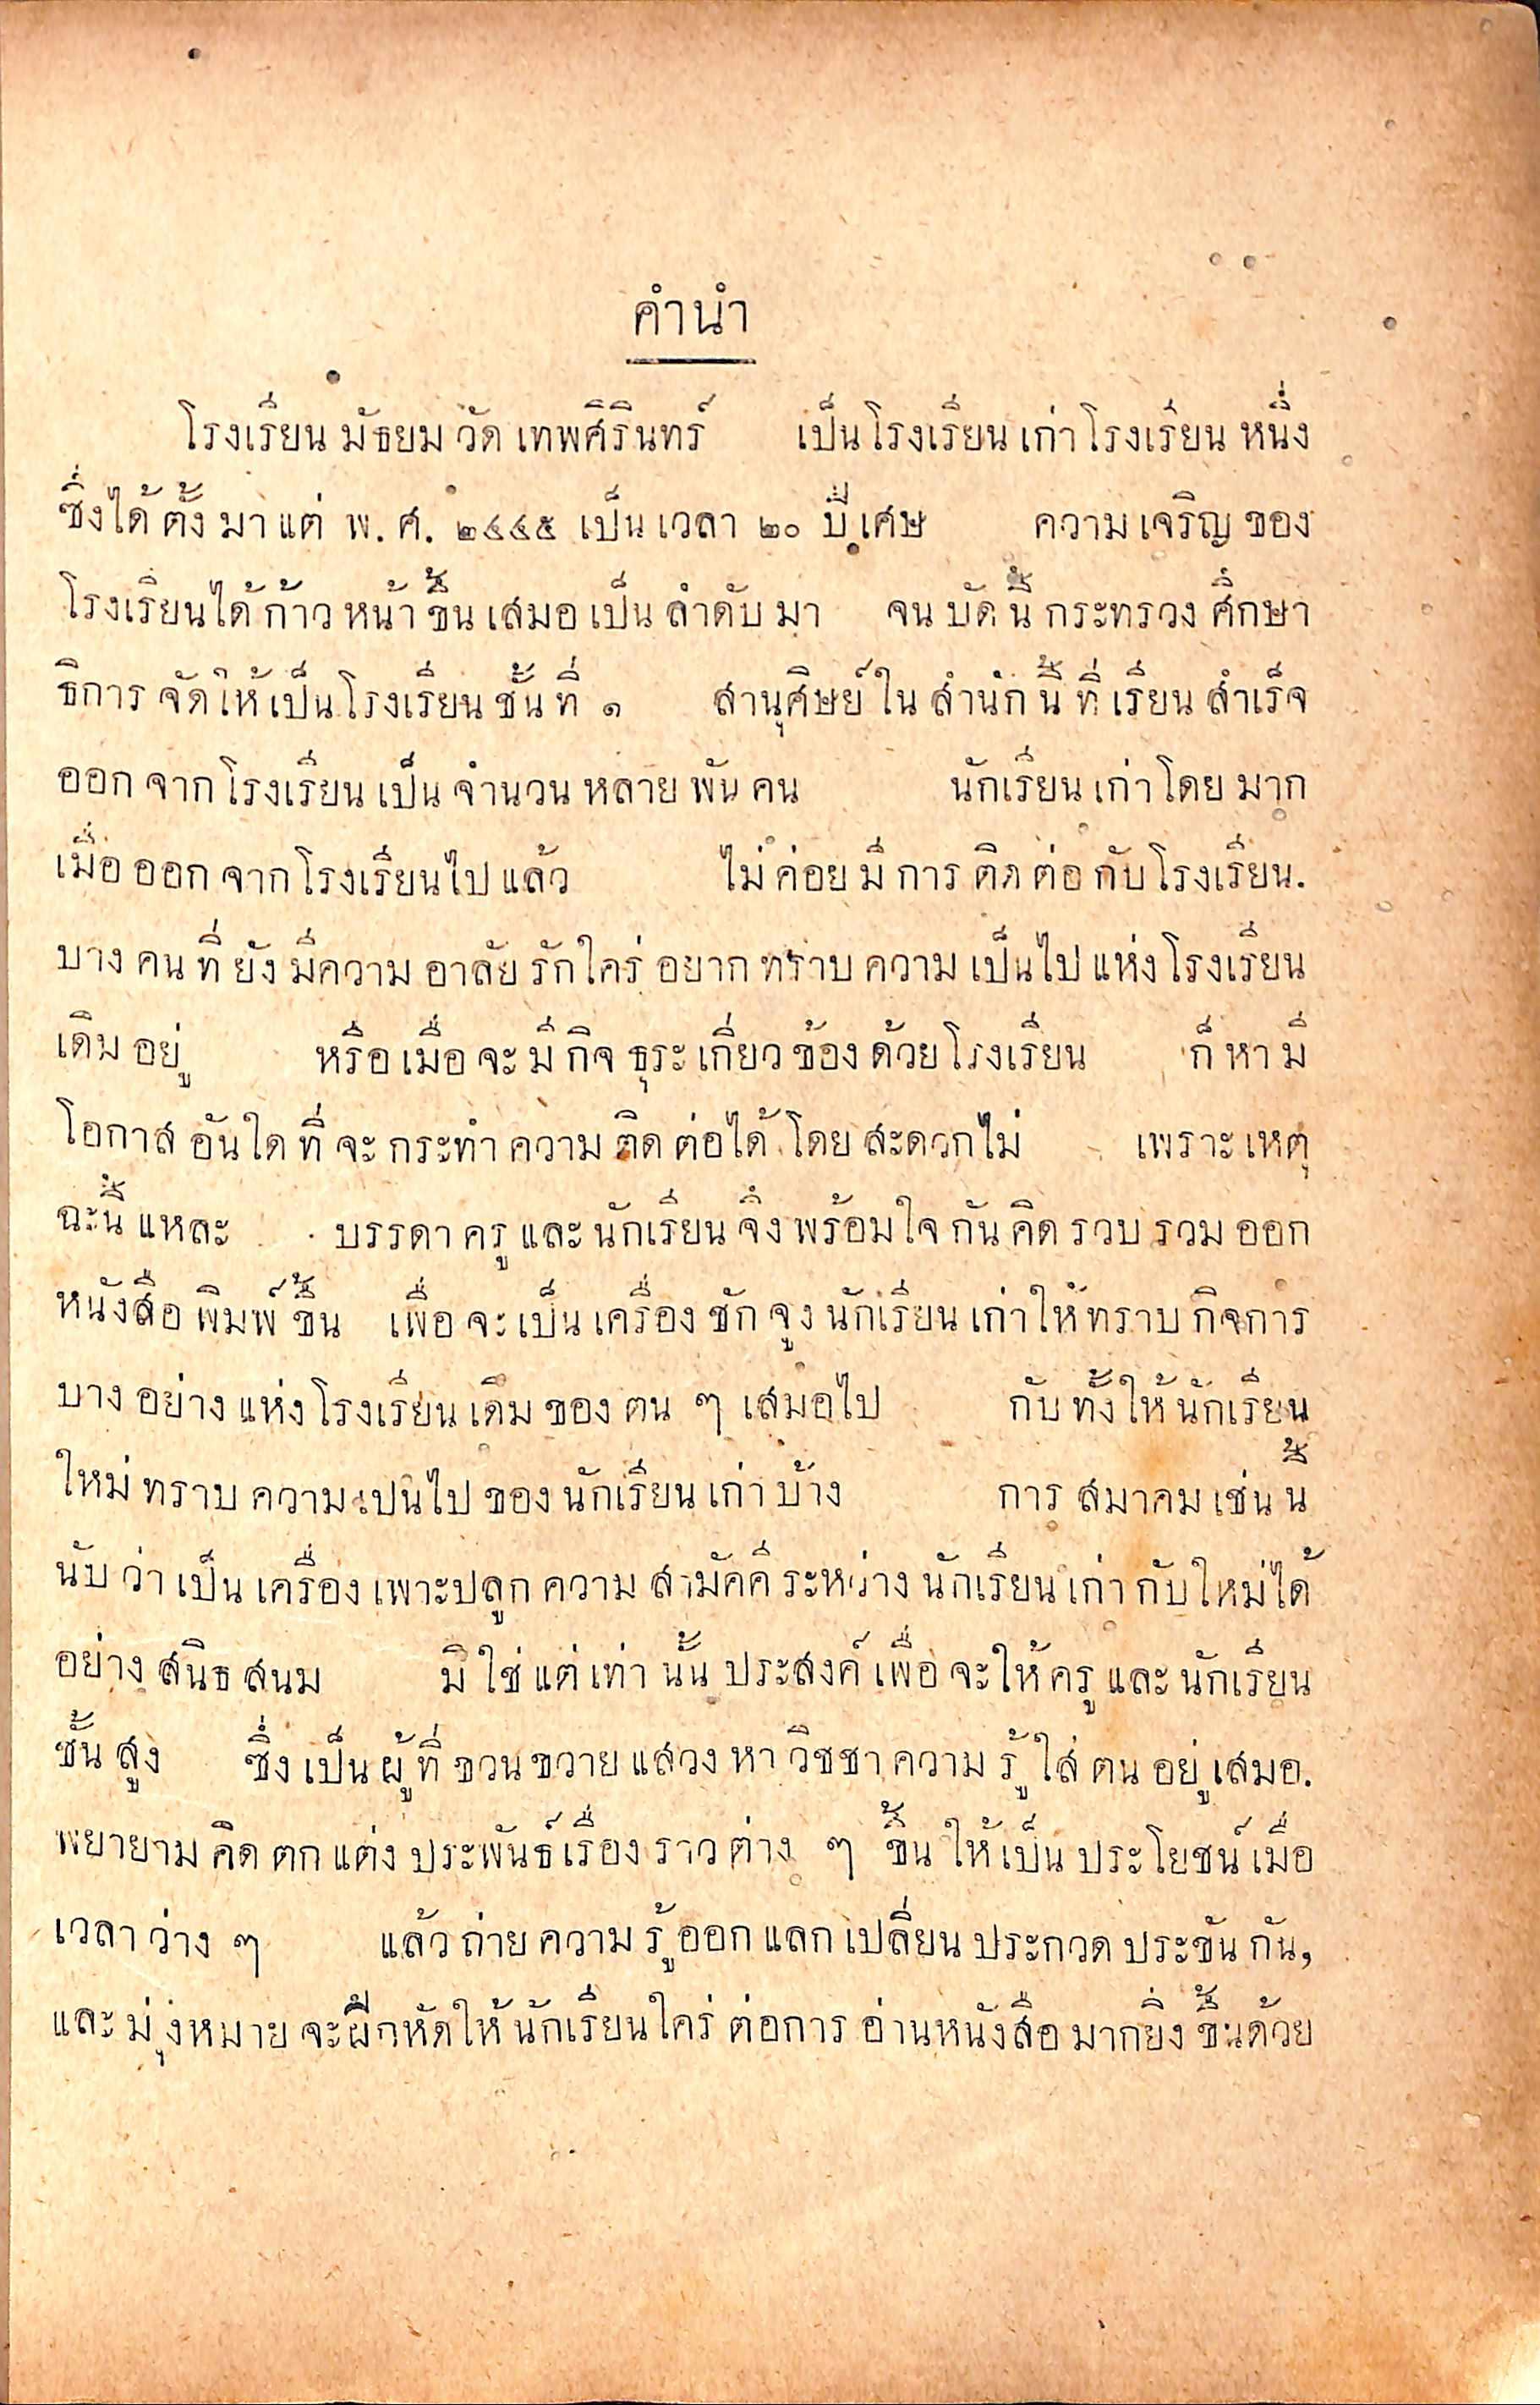 คำนำ
โรงเรียน มัธยม วัด เทพศิรินทร์ เป็น โรงเรียน เก่า โรงเรียน หนึ่ง
ซึ่งได้ ตั้ง มา แต่ พ. ศ. ๒๔๔๕ เป็น เวลา ๒๐ ปี เศษ ความ เจริญ ของ
โรงเรียนได้ ก้าว หน้า ขึ้น เสมอ เป็น ลำดับ มา จน บัด นี้ กระทรวง ศึกษา
ธิการ จัด ให้ เป็น โรงเรียน ชั้น ที่ ๑ สานุศิษย์ ใน สำนัก นี้ ที่ เรียน สำเร็จ
ออก จาก โรงเรียน เป็น จำนวน หลาย พัน คน นักเรียน เก่า โดย มาก
เมื่อ ออก จาก โรงเรียนไป แล้ว ไม่ ค่อย มี การ ติด ต่อ กับ โรงเรียน.
บาง คน ที่ ยัง มีความ อาลัย รักใคร่ อยาก ทราบ ความ เป็นไป แห่ง โรงเรียน
เดิม อยู่ หรือ เมื่อ จะ มี กิจ ธุระ เกี่ยว ข้อง ด้วย โรงเรียน ก็ หา มี
โอกาส อันใด ที่ จะ กระทำ ความ ติด ต่อได้ โดย สะดวกไม่ เพราะ เหตุ
ฉะนี้ แหละ บรรดา ครู และ นักเรียน จึ่ง พร้อม ใจ กัน คิด รวบ รวม ออก
หนังสือ พิมพ์ ขึ้น เพื่อ จะ เป็น เครื่อง ชัก จูง นักเรียน เก่า ให้ ทราบ กิจการ
บาง อย่าง แห่ง โรงเรียน เดิม ของ ตน ๆ เสมอไป กับ ทั้ง ให้ นักเรียน
ใหม่ ทราบ ความ เปนไป ของ นักเรียน เก่า บ้าง การ สมาคม เช่น นี้
นับ ว่า เป็น เครื่อง เพาะปลูก ความ สามัคคี ระหว่าง นักเรียน เก่า กับ ใหม่ได้
อย่าง สนิธ สนม มิ ใช่ แต่ เท่า นั้น ประสงค์ เพื่อ จะให้ ครู และ นักเรียน
ชั้น สูง ซึ่ง เป็น ผู้ ที่ ขวน ขวาย แสวง หา วิชชา ความ รู้ ใส่ ตน อยู่ เสมอ.
พยายาม คิด ตก แต่ง ประพันธ์ เรื่อง ราว ต่าง ๆ ขึ้น ให้ เป็น ประโยชน์ เมื่อ
เวลา ว่าง ๆ แล้ว ถ่าย ความ รู้ ออก แลก เปลี่ยน ประกวด ประขัน กัน,
และ มุ่งหมาย จะ ฝึกหัด ให้ นักเรียน ใคร่ ต่อการ อ่านหนังสือ มากยิ่ง ขึ้นด้วย